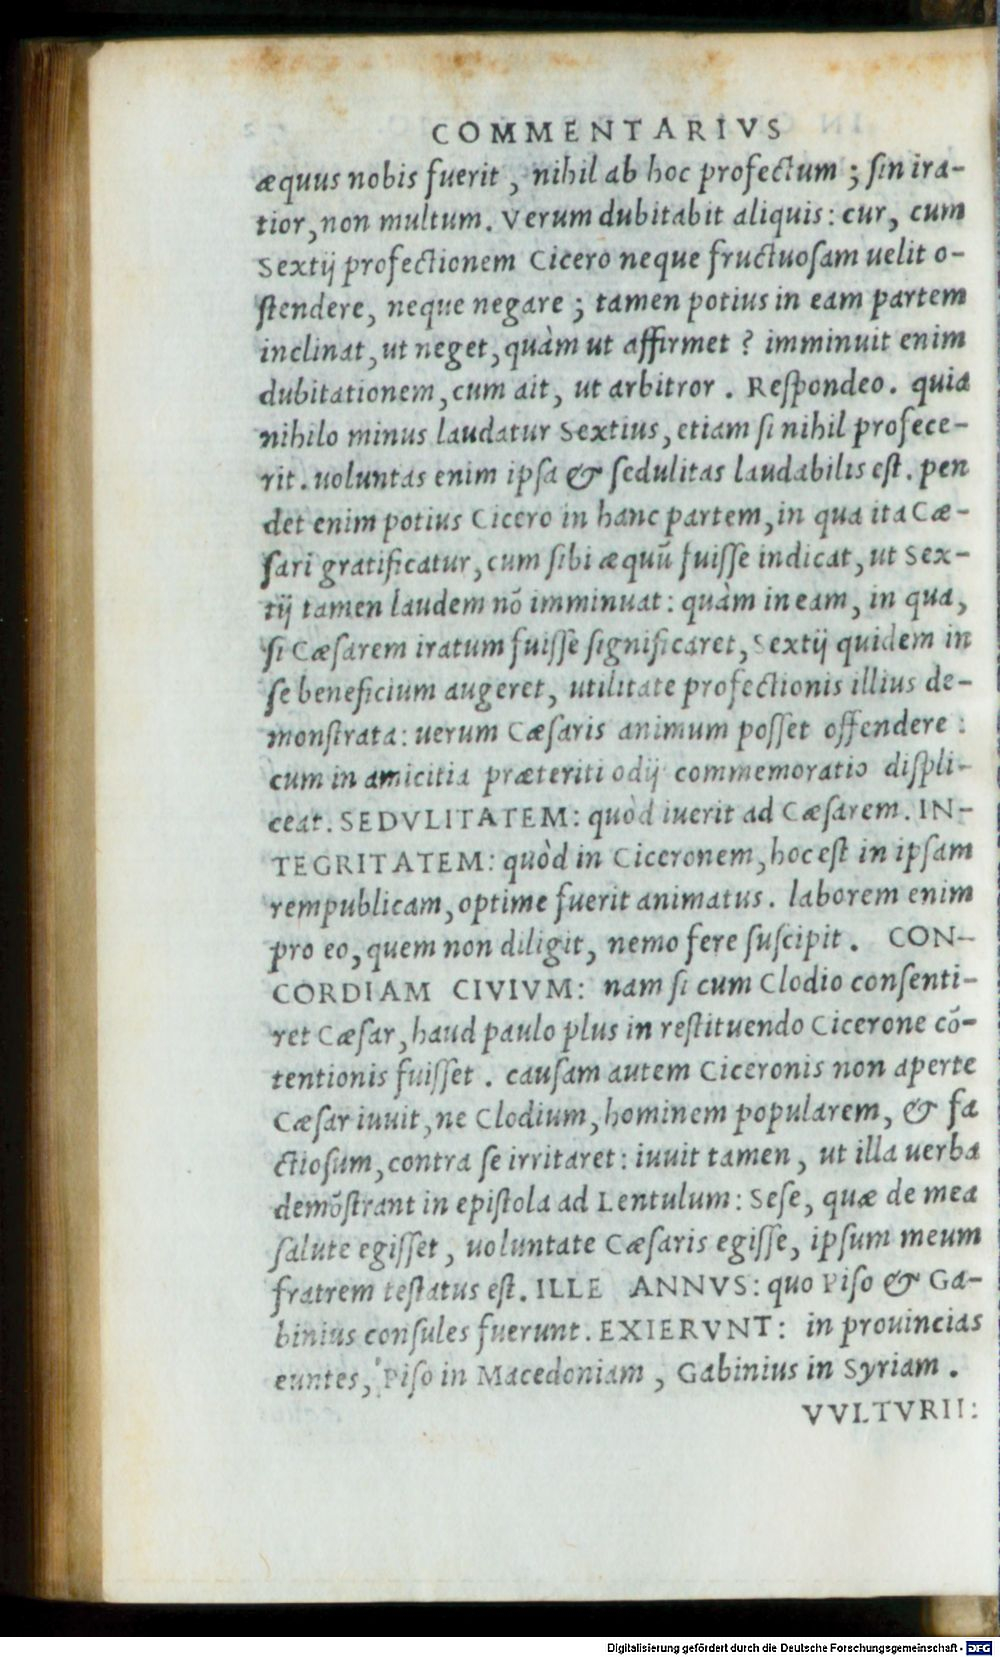 COMMENTARIVS
æquus nobis fuerit, nihil ab hoc profectum; sin ira-
tior, non multum. Verum dubitabit aliquis: cur, cum
Sextij profectionem Cicero neque fructuosam uelit o-
stendere, neque negare; tamen potius in eam partem
inclinat, ut neget, quàm ut affirmet? imminuit enim
dubitationem, cum ait, ut arbitror. Respondeo. quia
nihilo minus laudatur Sextius, etiam si nihil profece-
rit. uoluntas enim ipsa & sedulitas laudabilis est. pen
det enim potius Cicero in hanc partem, in qua ita Cæ-
sari gratificatur, cum sibi æquū fuisse indicat, ut Sex-
tij tamen laudem nō imminuat: quàm in eam, in qua,
si Cæsarem iratum fuisse significaret, Sextij quidem in
se beneficium augeret, utilitate profectionis illius de-
monstrata: uerum Cæsaris animum posset offendere:
cum in amicitia præteriti odij commemoratio displi-
ceat. SEDVLITATEM: quòd iuerit ad Cæsarem. IN-
TEGRITATEM: quòd in Ciceronem, hoc est in ipsam
rempublicam, optime fuerit animatus. laborem enim
pro eo, quem non diligit, nemo fere suscipit. CON-
CORDIAM CIVIVM: nam si cum Clodio consenti-
ret Cæsar, haud paulo plus in restituendo Cicerone cō-
tentionis fuisset. causam autem Ciceronis non aperte
Cæsar iuuit, ne Clodium, hominem popularem, & fa
ctiosum, contra se irritaret: iuuit tamen, ut illa uerba
demōstrant in epistola ad Lentulum: Sese, quæ de mea
salute egisset, uoluntate Cæsaris egisse, ipsum meum
fratrem testatus est. ILLE ANNVS: quo Piso & Ga-
binius consules fuerunt. EXIERVNT: in prouincias
euntes, Piso in Macedoniam, Gabinius in Syriam.
VVLTVRII:
Digitalisierung gefördert durch die Deutsche Forschungsgemeinschaft - DFG